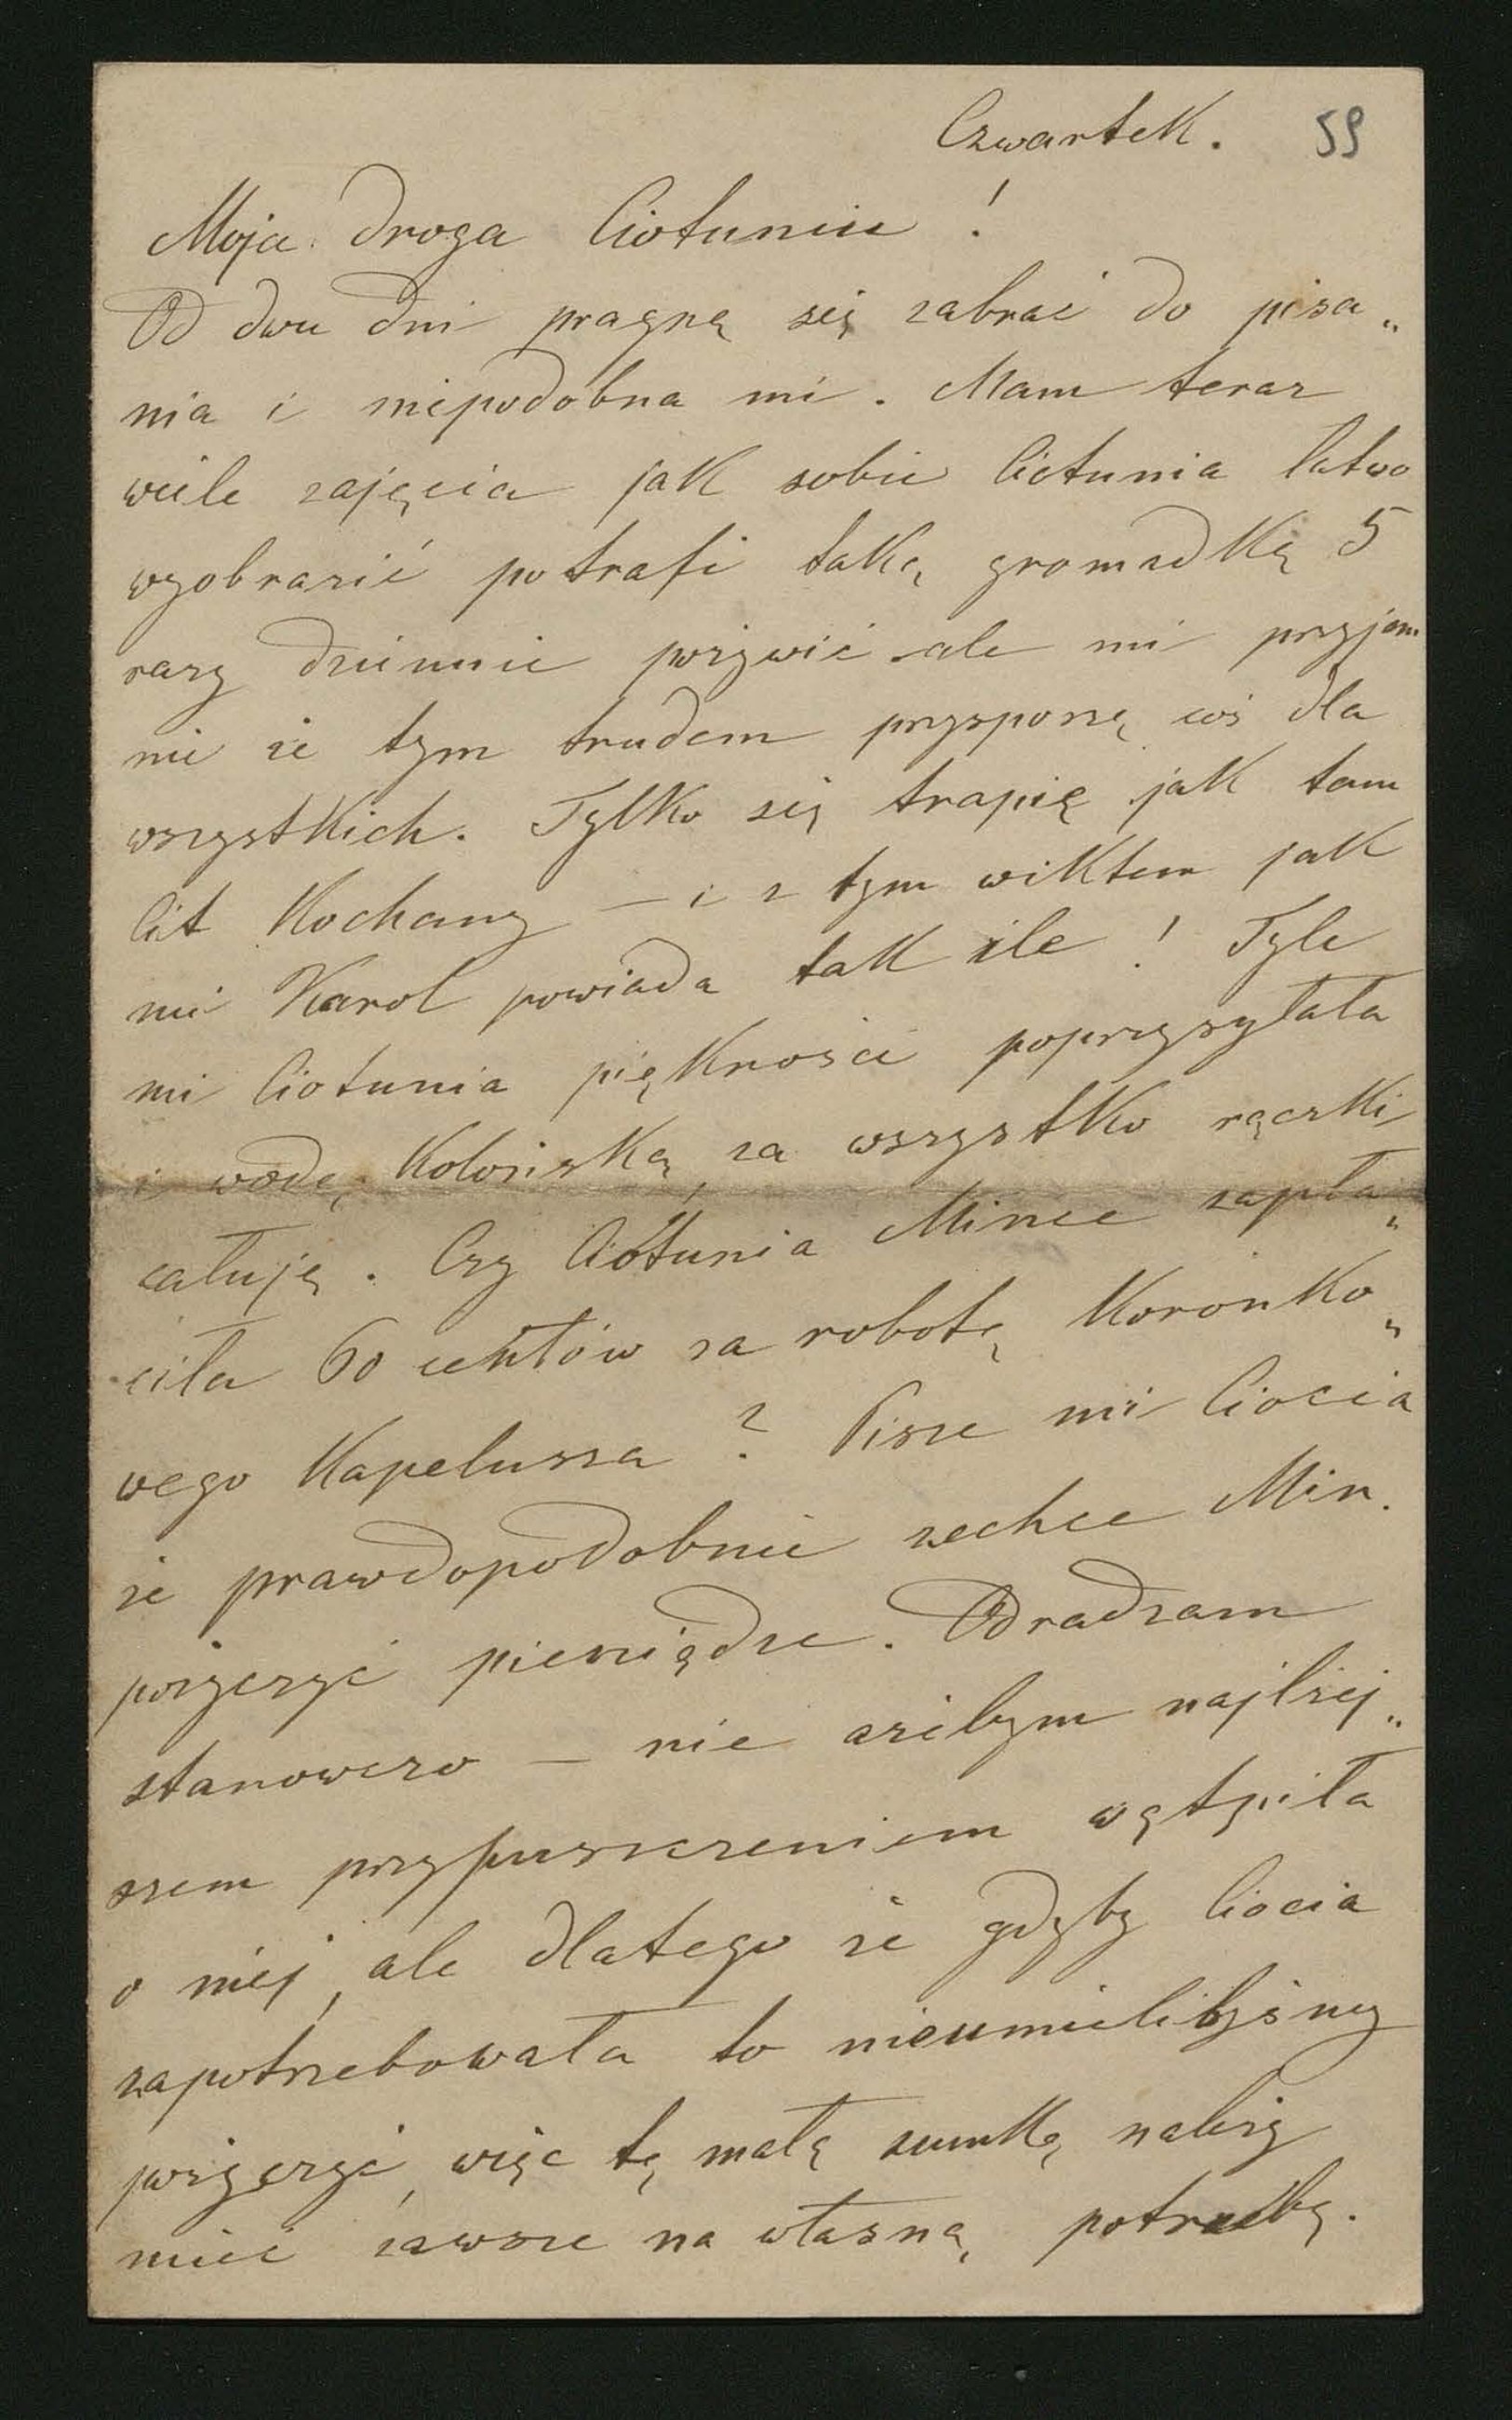 Czwartek. 59
Moja droga Ciotuniu !
Od dwu dni pragnę się zabrać do pisa„
nia i niepodobna mi. Mam teraz
wiele zajęcia jak sobie Ciotunia łatwo
wyobrazić potrafi taką gromadkę 5
razy dziennie pożywić ale mi przyjem
nie że tym trudem przysporzę coś dla
wszystkich. Tylko się trapię jak tam
Cit Kochany — i z tym wiktem jak
mi Karol powiada tak źle ! Tyle
mi Ciotunia piękności poprzysyłała
i wodę Kolońską, za wszystko rączki
całuję. Czy Ciotunia Mince zapła„
ciła 60 centów za robotę Koronko„
wego Kapelusza ? Pisze mi Ciocia
że prawdopodobnie zechce Min.
pożyczyć pieniądze. Odradzam
stanowczo — nie ażebym najlżej„
szem przypuszczeniem wątpiła
o niej, ale dlatego że gdyby Ciocia
zapotrzebowała to nieumielibyśmy
pożyczyć, więc tę małą sumkę należy
mieć zawsze na własną potrzebę.